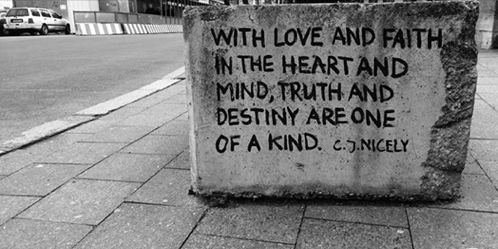 WITH LOVE AND FAITH
IN THE HEART AND
MIND, TRUTH AND
DESTINY ARE ONE
OF A KIND. C.J. NICELY